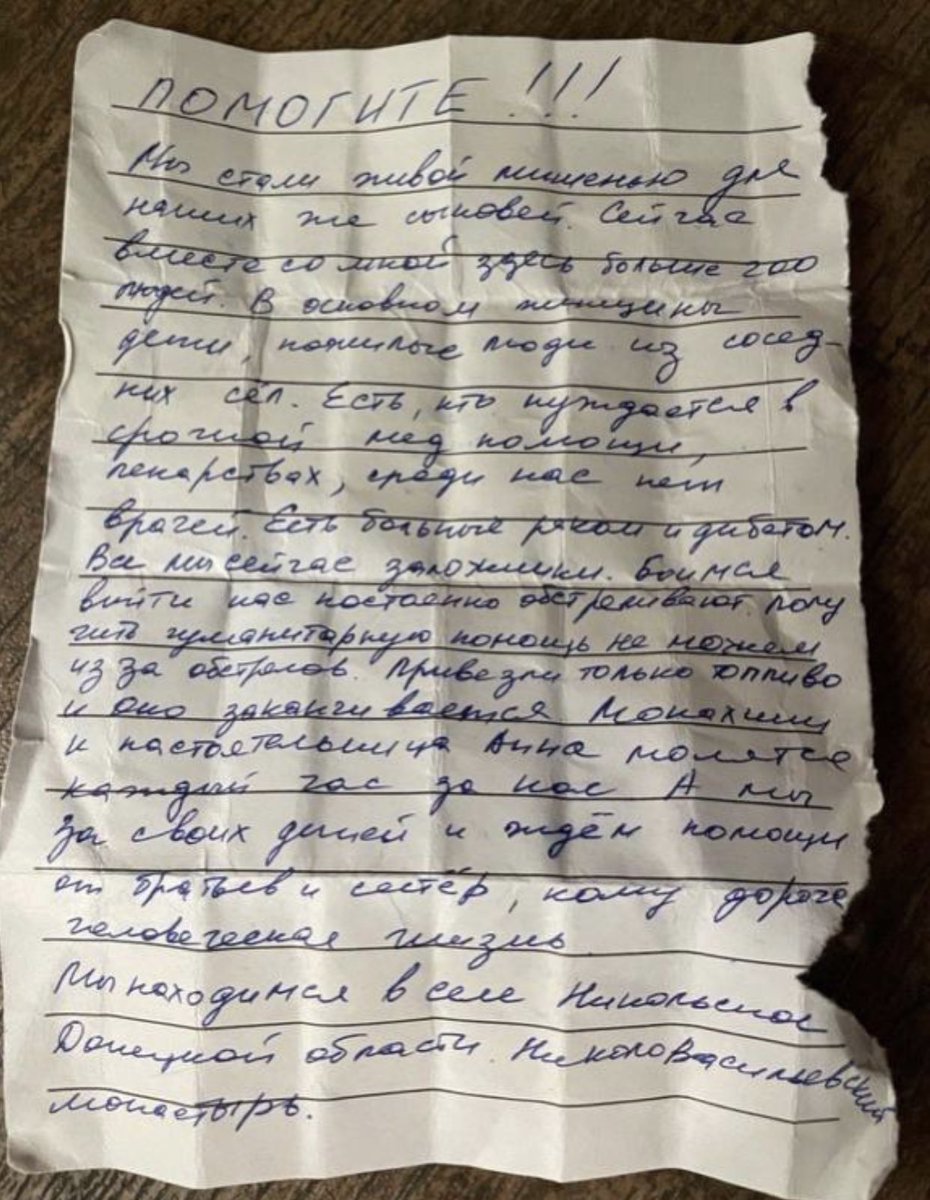 ПОМОГИТЕ !!!
Мы стали живой мишенью для
наших же сыновей. Сейчас
вместе со мной здесь больше 200
людей. В основном женщины
дети, пожилые люди из сосед-
них сёл. Есть, кто нуждается в
срочной мед помощи,
лекарствах, среди нас нет
врачей. Есть больные раком и дибетом.
Все мы сейчас заложники. Боимся
выйти нас постоенно обстреливают. Полу
чить гуманитарную помощь не можем
из за обстрелов. Привезли только топливо
и оно заканчивается Монахини
и настоятельница Анна молятся
каждый час за нас А мы
за своих детей и ждём помощи
от братьев и сестёр, кому дорога
человеческая жизнь
Мы находимся в селе Никольское
Донецкой области. НиколоВасильевский
монастырь.